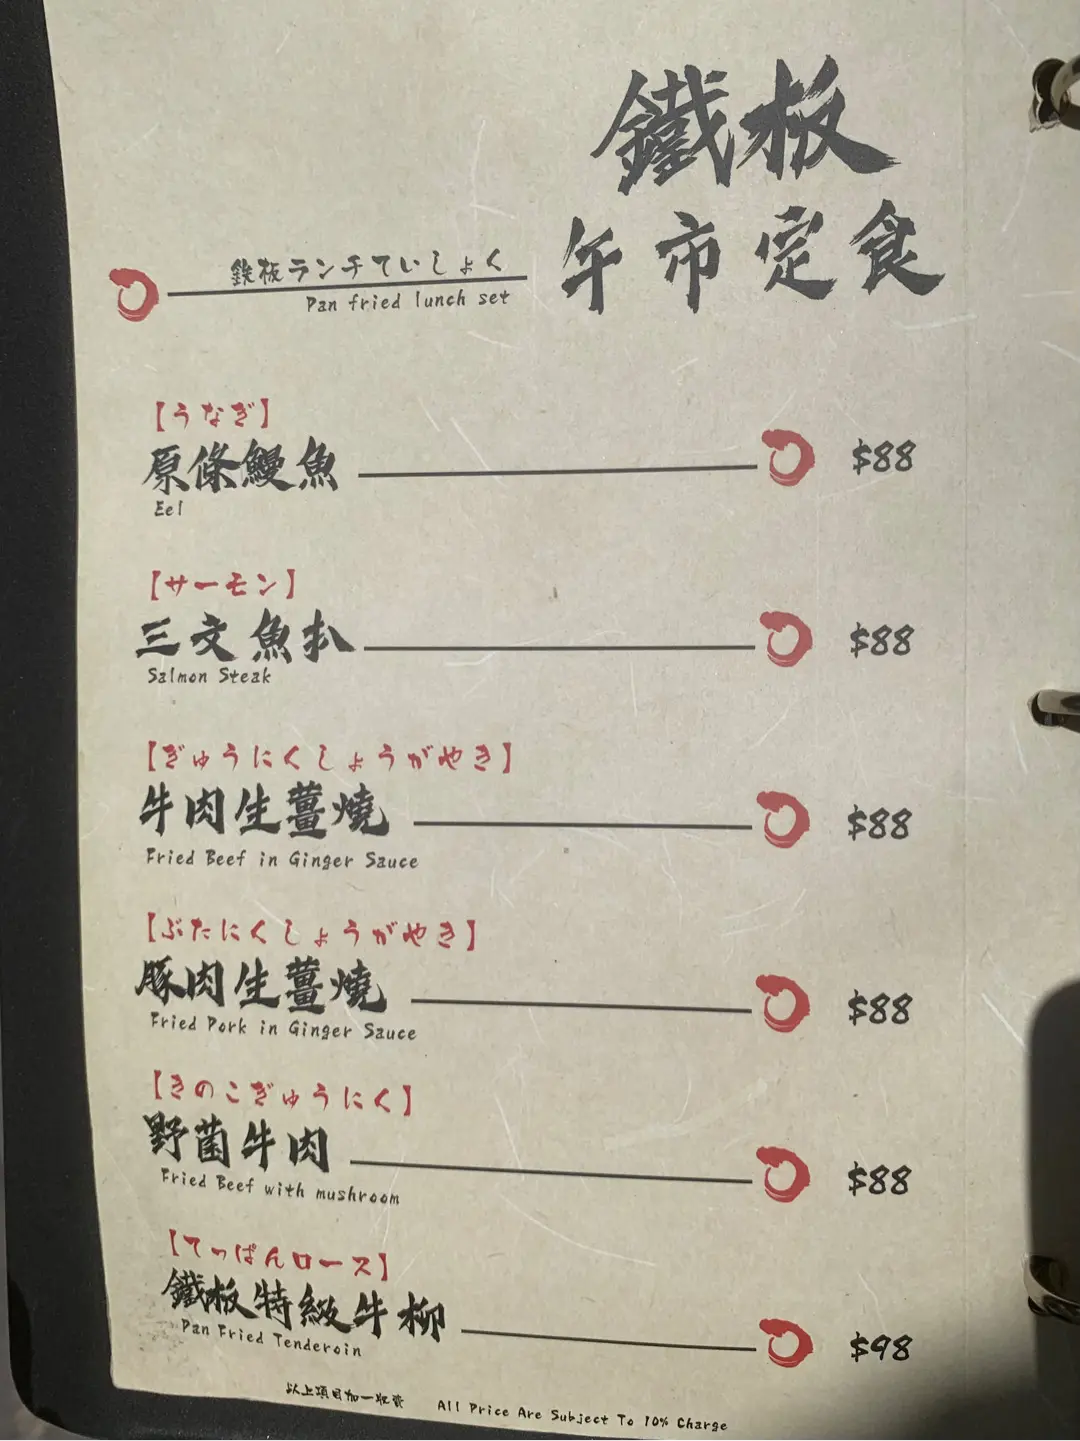 鐵板
午市定食
鉄板ランチていしょく
Pan fried lunch set
【うなぎ】
原條鰻魚
$88
Eel
【サーモン】
三文魚扒
$88
Salmon Steak
【ぎゅうにくしょうがやき】
牛肉生薑燒
$88
Fried Beef in Ginger Sauce
【ぶたにくしょうがやき】
豚肉生薑燒
$88
Fried Pork in Ginger Sauce
【きのこぎゅうにく】
野菌牛肉
$88
Fried Beef with mushroom
【てっぱんロース】
鐵板特級牛柳
$98
Pan Fried Tenderoin
以上項目加一收費 All Price Are Subject To 10% Charge